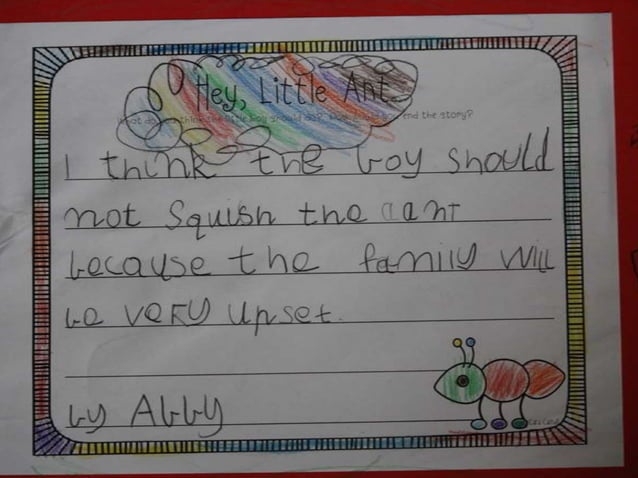 Hey, Little Ant
What do you think the little boy should do? How would you end the story?
I think the boy should
not Squish the a ant
because the family will
be very upset.
by Abby